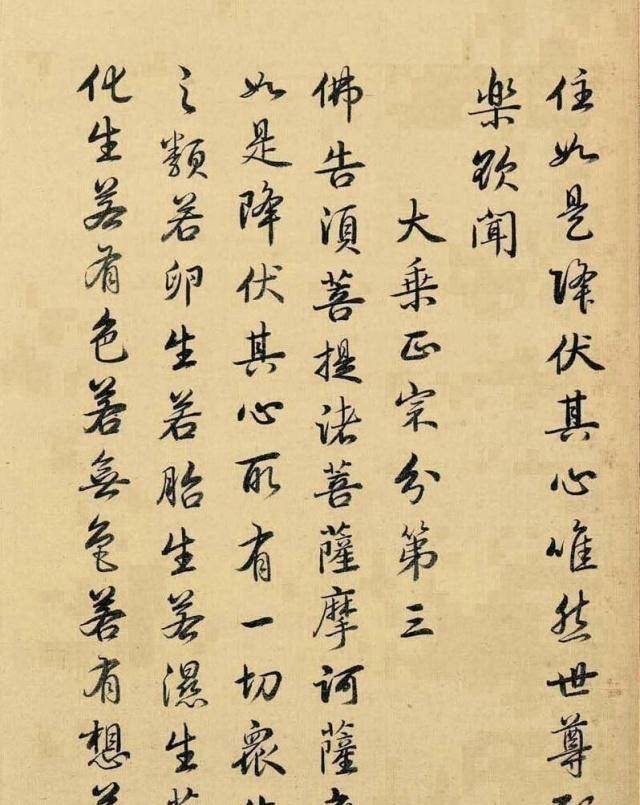 住如是降伏其心唯然世尊
樂欲聞
大乗正宗分第三
佛告須菩提諸菩薩摩訶薩
如是降伏其心所有一切衆
之類若卵生若胎生若濕生
化生若有色若無色若有想